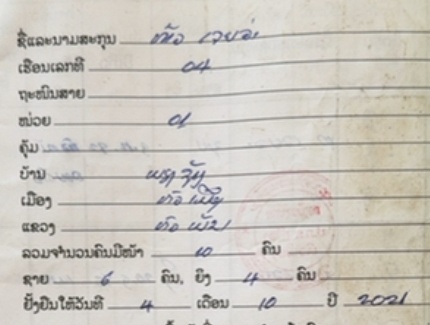 ຊື່ແລະນາມສະກຸນ
ເຮືອນເລກທີ 04
ຖະໜົນສາຍ
ໜ່ວຍ 01
ຄຸ້ມ
ບ້ານ
ເມືອງ
ແຂວງ ຫົວພັນ
ລວມຈຳນວນຄົນມີໜ້າ 10 ຄົນ
ຊາຍ 6 ຄົນ, ຍິງ 4 ຄົນ
ຢັ້ງຢືນໃຫ້ວັນທີ 4 ເດືອນ 10 ປີ 2021